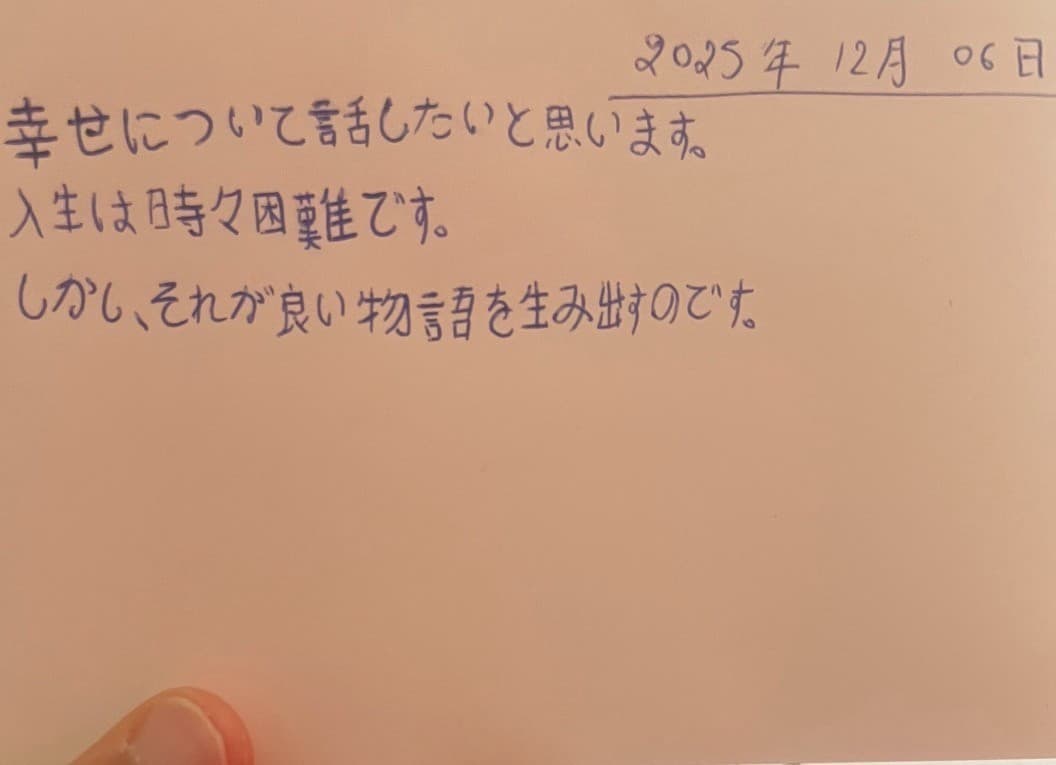 2025年 12月 06日
幸せについて話したいと思います。
入生は時々困難です。
しかし、それが良い物語を生み出すのです。